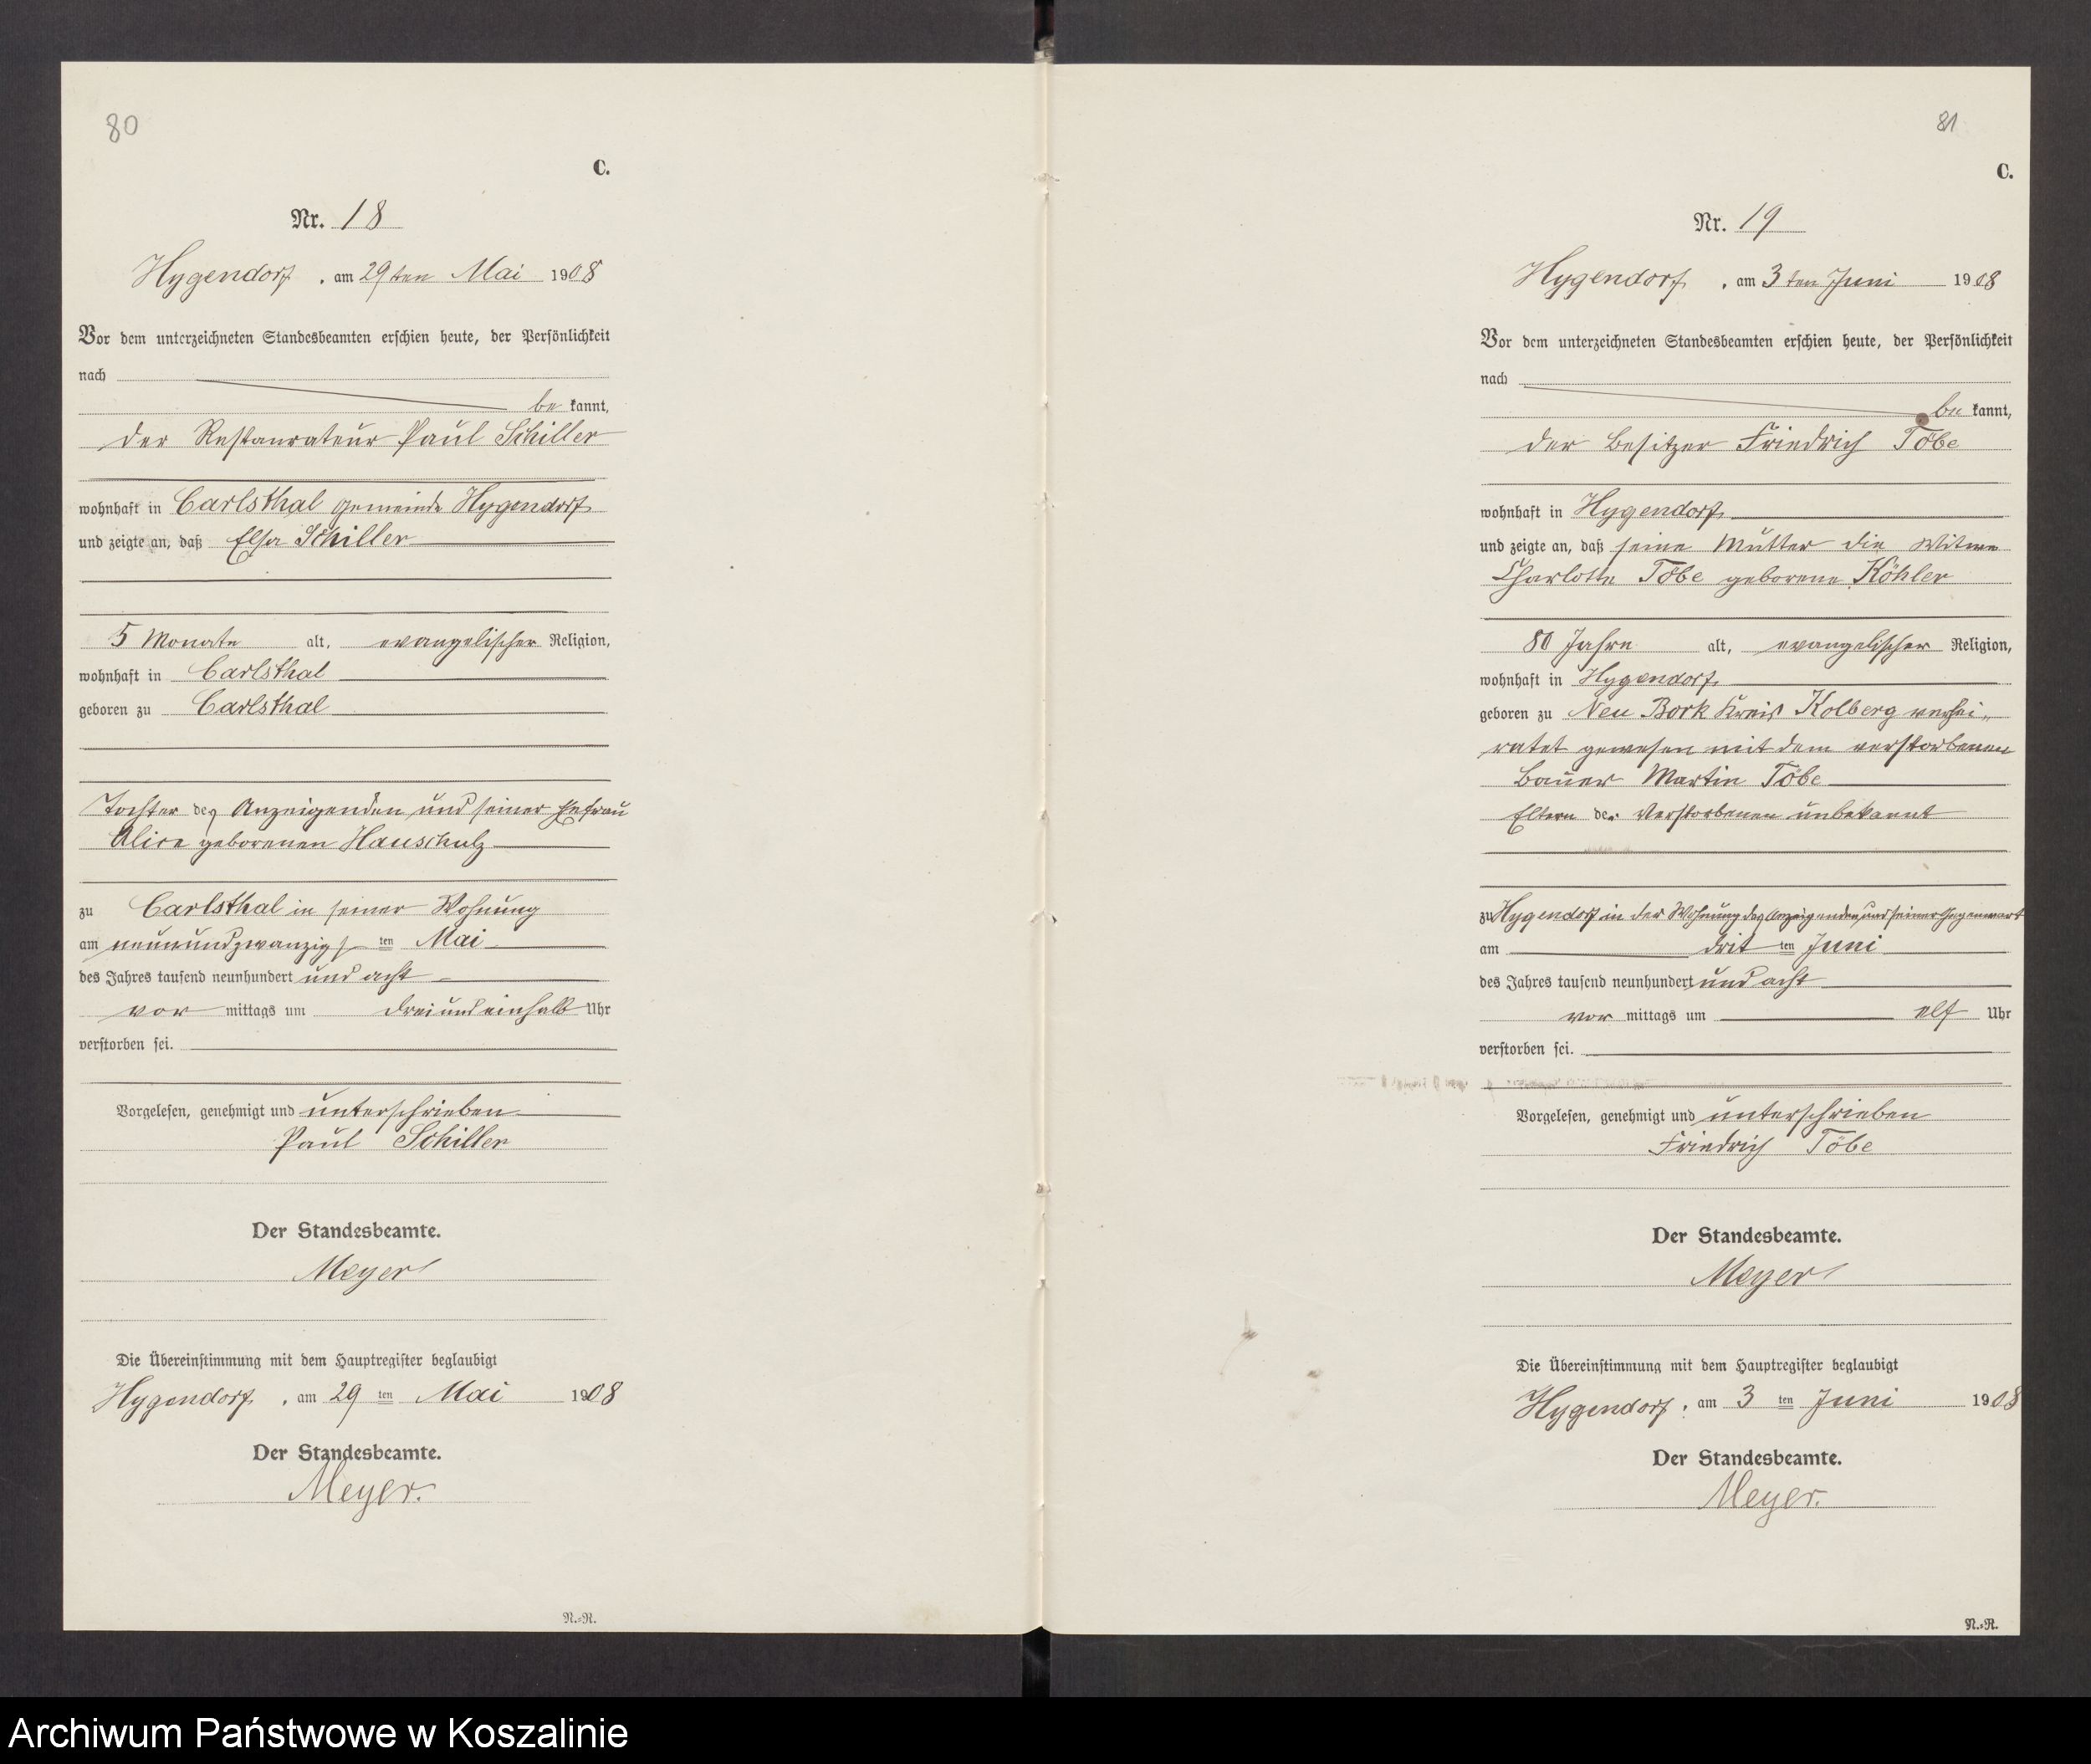 80
C.
Nr. 18
Hygendorf, am 29ten Mai 1908
Vor dem unterzeichneten Standesbeamten erschien heute, der Persönlichkeit
nach
be kannt,
der Restaurateur Paul Schiller
wohnhaft in Carlsthal Gemeinde Hygendorf
und zeigte an, daß Elsa Schiller
5 Monate alt, evangelischer Religion,
wohnhaft in Carlsthal
geboren zu Carlsthal
Tochter des Anzeigenden und seiner Ehefrau
Alice geborenen Hauschulz
zu Carlsthal in seiner Wohnung
am neunundzwanzigsten Mai
des Jahres tausend neunhundert und acht
vor mittags um dreiundeinhalb Uhr
verstorben sei.
Vorgelesen, genehmigt und unterschrieben
Paul Schiller
Der Standesbeamte.
Meyer
Die Übereinstimmung mit dem Hauptregister beglaubigt
Hygendorf, am 29 ten Mai 1908
Der Standesbeamte.
Meyer.
N.-R.
81
C.
Nr. 19
Hygendorf, am 3ten Juni 1908
Vor dem unterzeichneten Standesbeamten erschien heute, der Persönlichkeit
nach
be kannt,
der Besitzer Friedrich Töbe
wohnhaft in Hygendorf
und zeigte an, daß seine Mutter die Witwe
Charlotte Töbe geborene Köhler
80 Jahre alt, evangelischer Religion,
wohnhaft in Hygendorf
geboren zu Neu Bork Kreis Kolberg verhei-
ratet gewesen mit dem verstorbenen
Bauer Martin Töbe
Eltern der Verstorbenen unbekannt
zu Hygendorf in der Wohnung des Anzeigenden und seiner Gegenwart
am drit ten Juni
des Jahres tausend neunhundert und acht
vor mittags um elf Uhr
verstorben sei.
Vorgelesen, genehmigt und unterschrieben
Friedrich Töbe
Der Standesbeamte.
Meyer
Die Übereinstimmung mit dem Hauptregister beglaubigt
Hygendorf, am 3 ten Juni 1908
Der Standesbeamte.
Meyer.
N.-R.
Archiwum Państwowe w Koszalinie